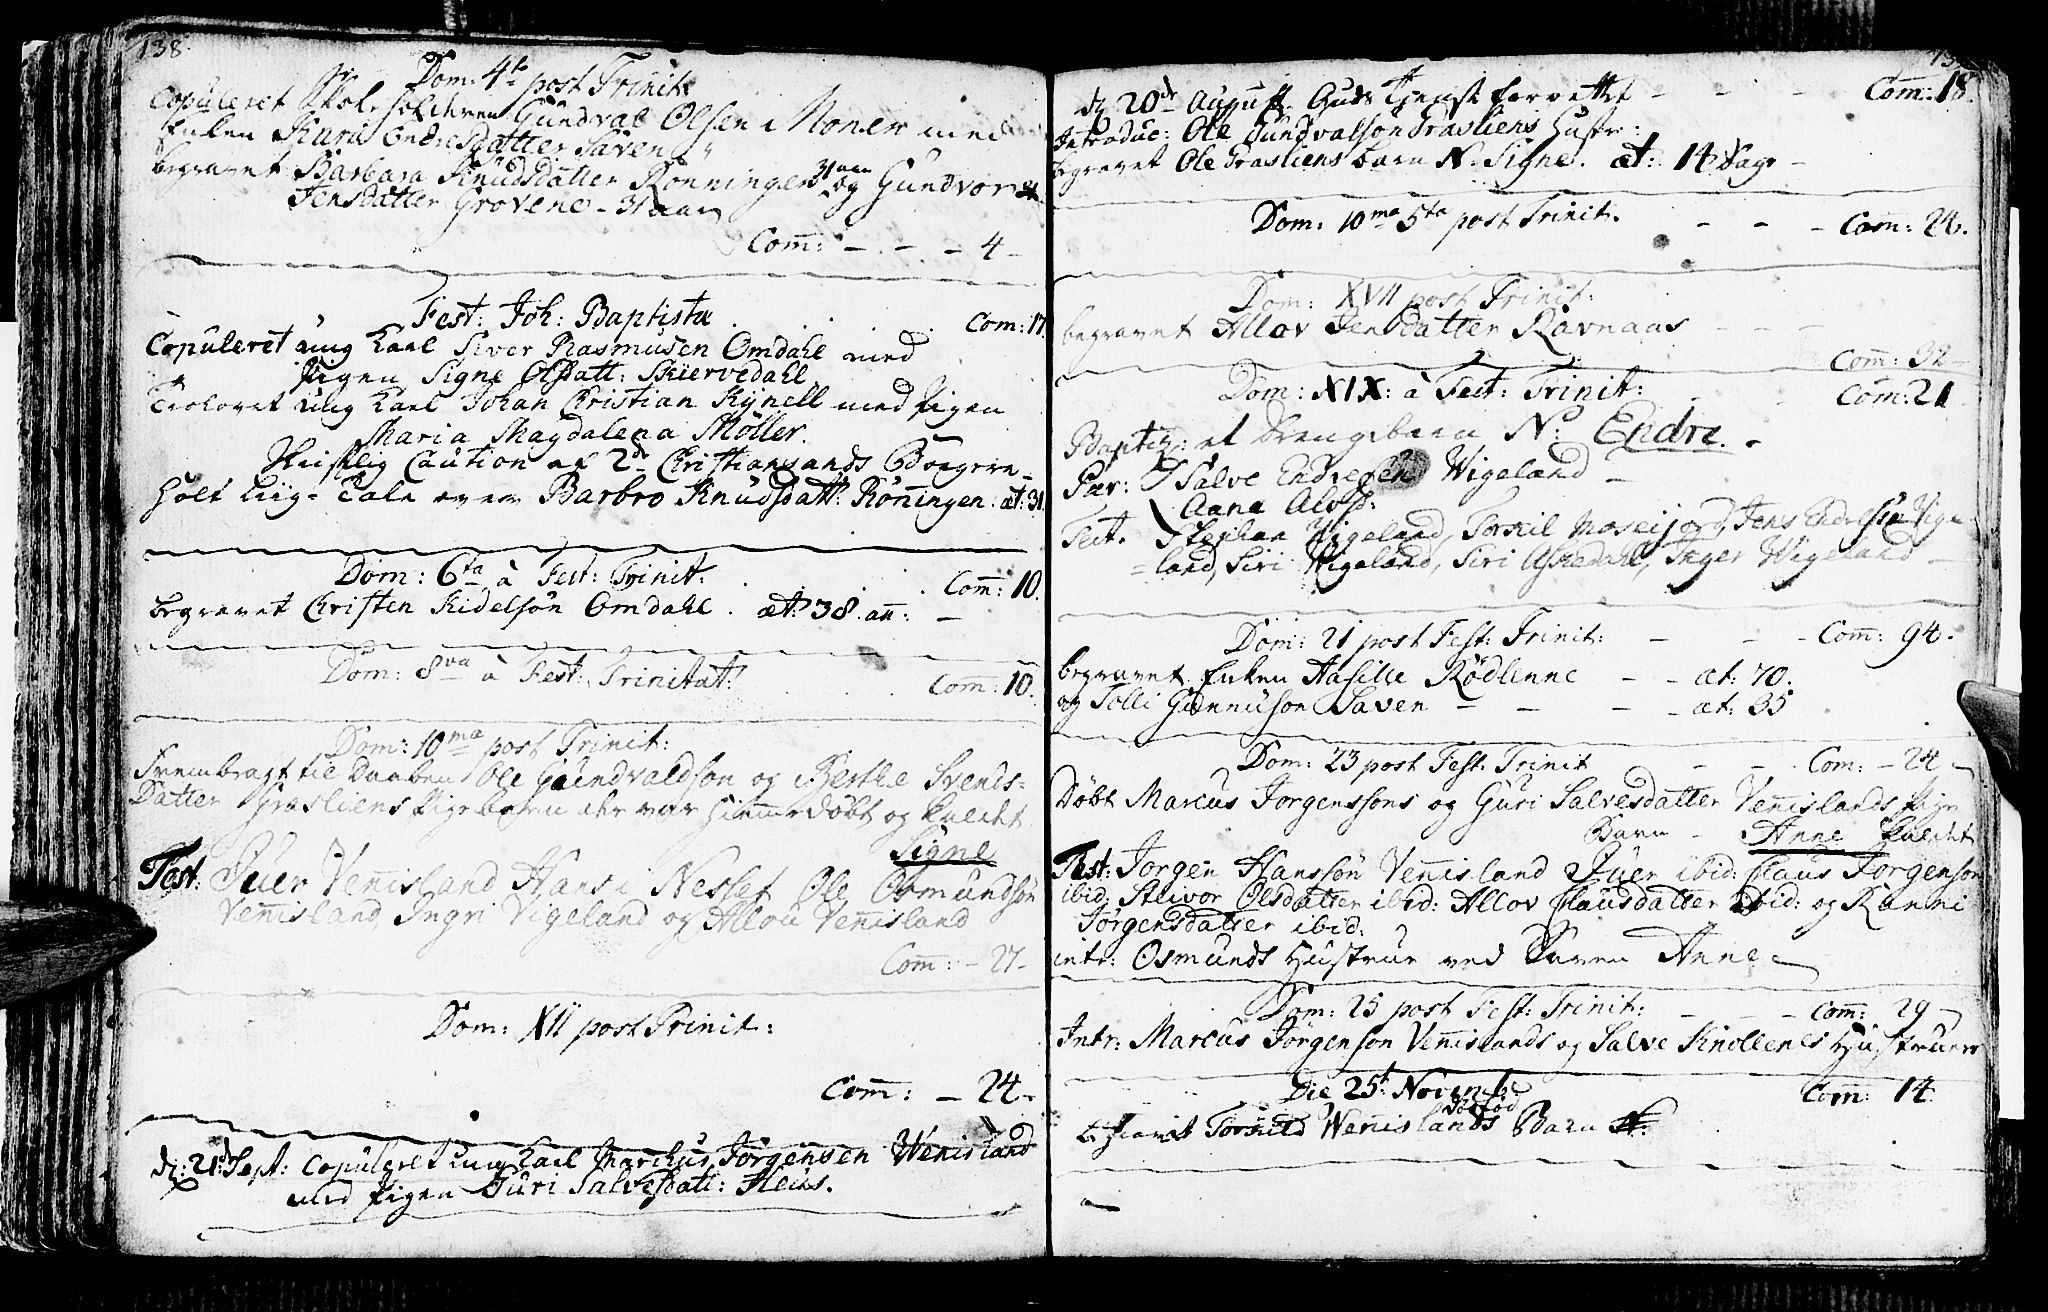 138.
Dom: 4te post Trinit:
Copuleret Skoleholderen Gundval Olsen Moner med
Enken Kari Endresdatter Saven
begravet Barbara Knudsdatter Rönningen 31 aar og Gundvor
Jensdatter Grovene - 31 aar
Com̅: - - - 4 -
Fest: Joh: Baptistæ . . . . Com: 17
Copuleret ung Karl Siver Rasmusen Omdahl med
Pigen Signe Olsdatt: Skiervedahl
Trolovet ung Karl Johan Christian Kynell med Pigen
Maria Magdalena Möller.
Skriftlig Caution af 2de Christiansands Borgere -
holt Liig-Tale over Barbro Knudsdatt: Rönningen. æt: 31
Dom: 6ta à Fest: Trinit: . . . Com̅: 10.
begravet Christen Kidelsön Omdahl. æt: 38. an̅: -
Dom: 8va à Fest: Trinitat: . . . Com̅: 10.
Dom: 10ma post Trinit:
Frembragt til Daaben Ole Gundvaldson og Berthe Svends-
Datter Grasliens Pigebarn der var hiemmedöbt og kaldet
Signe
Test: Siuer Ven̅island Hans i Nesset Ole Osmundsön
Ven̅island, Ingri Vigeland og Allou Ven̅island
Com̅: - 27 -
Dom: XII post Trinit:
Com̅: - 24 -
d: 21de Sept: Copuleret ung Karl Marchus Jörgensen Wenisland
med Pigen Guri Salvesdatt: Heiis.
d: 20de August. Guds Tjeneste forrettet - - - Com̅: 18.
Introduc: Ole Gundvalson Grasliens Hustr:
begravet Ole Grasliens barn N. Signe. æt: 14 Dage -
Dom: 10ma 5ta post Trinit. - - - Com̅: 26.
Dom: XVII post Trinit:
begravet Allov Jensdatter Ravnaas - - -
Com̅: 32 -
Dom: XIX: à Fest: Trinit: - - Com̅: 21
Baptiz: et Drengebarn N: Endre. -
Par: Salve Endresen Wigeland -
Aane Alvsd.
Test. Stephan Vigeland, Torkil Moseijord, Jens Endresen Vige
=land, Siri Wigeland, Siri Askedahl, Inger Wigeland -
Dom: 21 post Fest: Trinit: - - - Com̅: 94.
begravet Enken Aasille Rödlenne - - æt: 70.
og Tolli Gunnuson Saven - - - æt: 35.
Dom: 23 post Fest: Trinit - - Com: - 24 -
Döbt Marcus Jorgenssons og Guri Salvesdatter Ven̅islands Pige
Barn - Anne kaldet
Test: Jorgen Hanssön Ven̅island Siuer ibid: Claus Jorgenson
ibid: Steivor Olsdatter ibid: Allov Clausdatter ibid: og Ranni
Jörgensdatter ibid:
intr: Osmunds Hustrue ved Navn Anne -
Dom: 25 post Fest: Trinit: - - - Com̅: 29 -
Intr: Marcus Jörgenson Ven̅islands og Salve Knollenes Hustruer
Die 25t Novemb Com̅: 14
dödföd
begravet Torkild Wen̅islands Barn